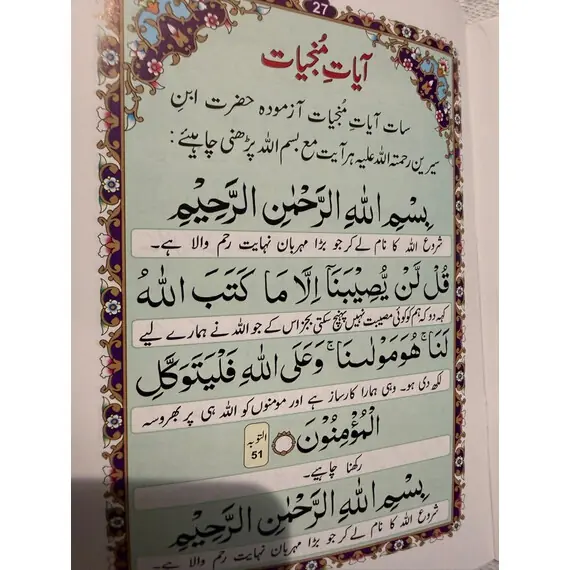 27
آیاتِ مُنجیات
سات آیاتِ مُنجیات آزمودہ حضرت ابنِ
سیرین رحمتہ اللہ علیہ ہر آیت مع بسم اللہ پڑھنی چاہیئے:
بِسْمِ اللهِ الرَّحْمٰنِ الرَّحِیْمِ
شروع اللہ کا نام لے کر جو بڑا مہربان نہایت رحم والا ہے۔
قُلْ لَّنْ یُّصِیْبَنَاۤ اِلَّا مَا كَتَبَ اللهُ
کہہ دو کہ ہم کو کوئی مصیبت نہیں پہنچ سکتی بجز اس کے جو اللہ نے ہمارے لیے
لَنَا ۚ هُوَ مَوْلٰىنَا ۚ وَعَلَى اللهِ فَلْیَتَوَكَّلِ
لکھ دی ہو۔ وہی ہمارا کارساز ہے اور مومنوں کو اللہ ہی پر بھروسہ
الْمُؤْمِنُوْنَ
التوبہ
51
رکھنا چاہیے۔
بِسْمِ اللهِ الرَّحْمٰنِ الرَّحِیْمِ
شروع اللہ کا نام لے کر جو بڑا مہربان نہایت رحم والا ہے۔